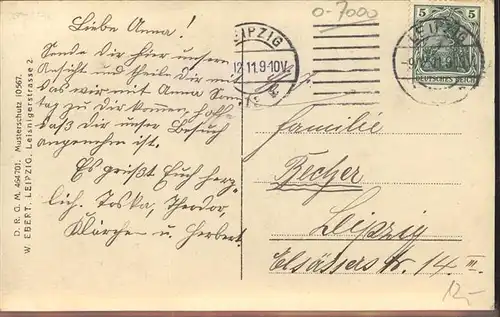 Liebe Anna!
Sende dir hier unsere
Ansicht und theile Dir mit
das wir mit Anna Sonn-
tag zu dir kommen, hoffe
daß dir unser Besuch
angenehm ist.
Es grüßt Euch herz-
lich. Toska, Theodor,
Klärchen u. Herbert
D. R. G. M. 464701. Musterschutz 10567.
W. EBERT, LEIPZIG, Leisnigerstrasse 2.
LEIPZIG
12 11.9-10V.
0-7000
LEIPZIG
5 5
DEUTSCHES REICH
Familie
Becher
Leipzig
Elsässerstr. 14 III.
12,-